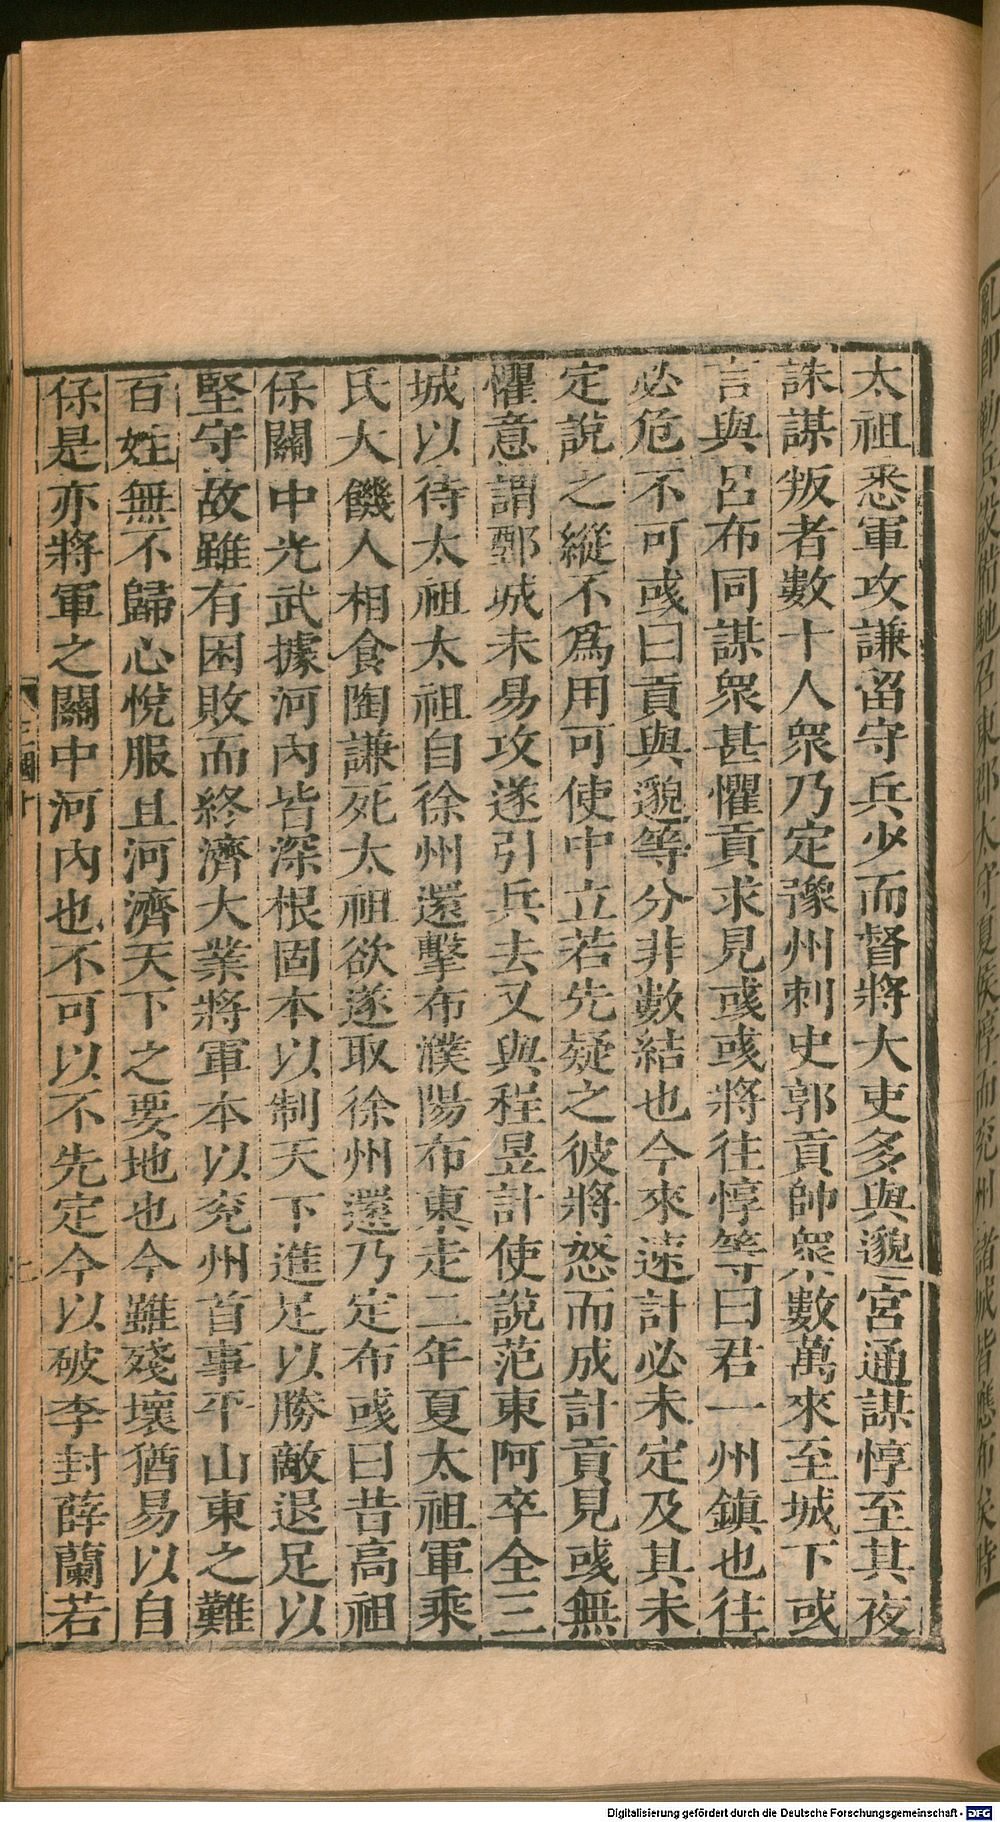 太祖悉軍攻謙留守兵少而督將大吏多與邈宮通謀惇至其夜
誅謀叛者數十人衆乃定豫州刺史郭貢帥衆數萬來至城下或
言與呂布同謀衆甚懼貢求見彧彧將往惇等曰君一州鎮也往
必危不可彧曰貢與邈等分非數結也今來速計必未定及其未
定說之縱不爲用可使中立若先疑之彼將怒而成計貢見彧無
懼意謂鄄城未易攻遂引兵去又與程昱計使說范東阿卒全三
城以待太祖太祖自徐州還擊布濮陽布東走二年夏太祖軍乘
氏大饑人相食陶謙死太祖欲遂取徐州還乃定布彧曰昔高祖
保關中光武據河內皆深根固本以制天下進足以勝敵退足以
堅守故雖有困敗而終濟大業將軍本以兗州首事平山東之難
百姓無不歸心悅服且河濟天下之要地也今雖殘壞猶易以自
保是亦將軍之關中河內也不可以不先定今以破李封薛蘭若
三國十
Digitalisierung gefördert durch die Deutsche Forschungsgemeinschaft - DFG